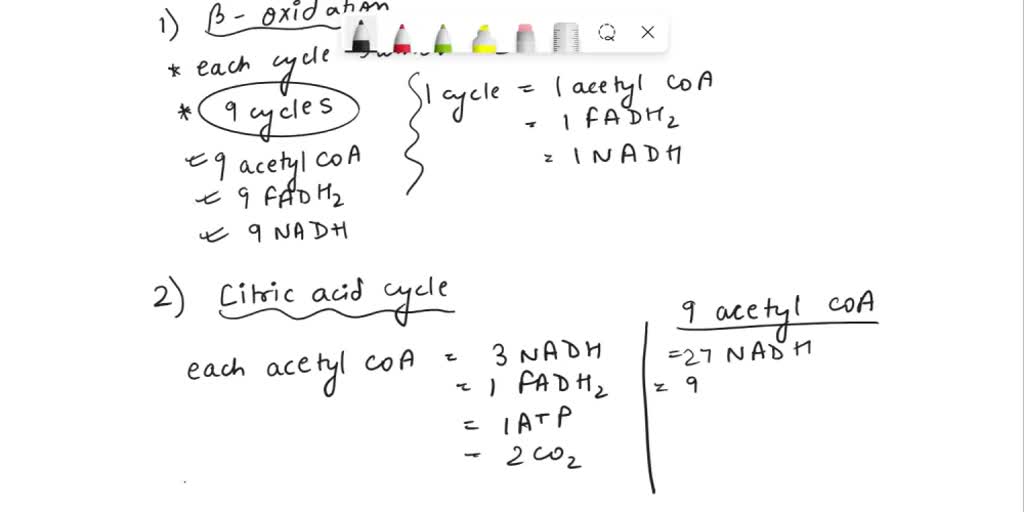 1) β- oxidation
* each cycle
* 9 cycles
9 acetyl CoA
9 FADH2
9 NADH
1 cycle = 1 acetyl CoA
= 1 FADH2
= 1 NADH
2) Citric acid cycle
each acetyl CoA = 3 NADH
= 1 FADH2
= 1 ATP
- 2 CO2
9 acetyl CoA
= 27 NADH
= 9